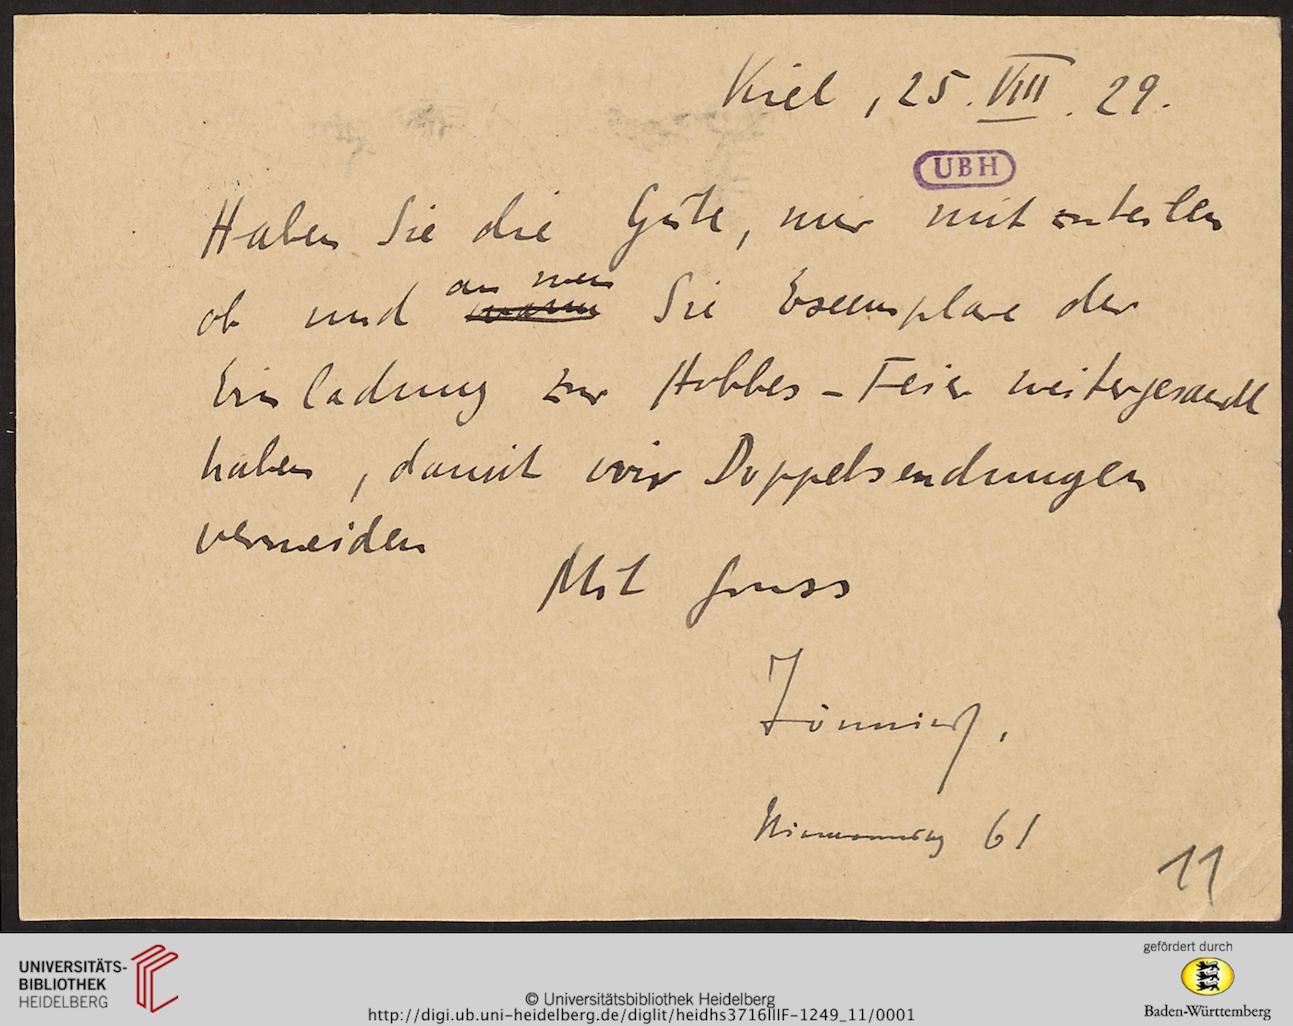 Kiel, 25. VIII. 29.
UBH
Haben Sie die Güte, mir mitzuteilen
an wen
ob und Sie Exemplare der
Einladung zur Hobbes-Feier weitergesandt
haben, damit wir Doppelsendungen
vermeiden
Mit Gruss
Tönnies,
Niemannsweg 61
11
UNIVERSITÄTS-
BIBLIOTHEK
HEIDELBERG
gefördert durch
Baden-Württemberg
© Universitätsbibliothek Heidelberg
http://digi.ub.uni-heidelberg.de/diglit/heidhs3716IIIF-1249_11/0001